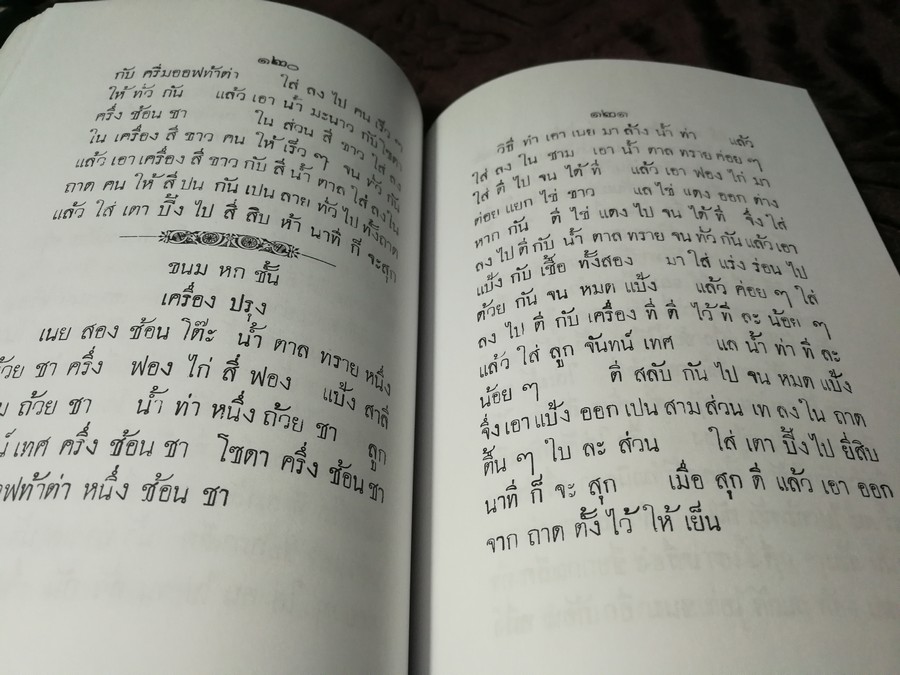 ๑๒๐
กับ ครีมออฟท้าด่า ใส่ ลง ไป คน เร็ว ๆ
ให้ ทั่ว กัน แล้ว เอา น้ำ มะนาว กับโซดา
ครึ่ง ช้อน ชา ใน ส่วน สี ขาว ใส่ ลง
ใน เครื่อง สี ขาว คน ให้ เร็ว ๆ จน ทั่ว กัน
แล้ว เอา เครื่อง สี ขาว กับ สี น้ำ ตาล ใส่ ลง ใน
ถาด คน ให้ สี ปน กัน เปน ลาย ทั่ว ไป ทั้ง ถาด
แล้ว ใส่ เตา ปิ้ง ไป สี่ สิบ ห้า นาที ก็ จะ สุก
ขนม หก ชั้น
เครื่อง ปรุง
เนย สอง ช้อน โต๊ะ น้ำ ตาล ทราย หนึ่ง
ถ้วย ชา ครึ่ง ฟอง ไก่ สี่ ฟอง แป้ง สาลี
ถ้วย ชา น้ำ ท่า หนึ่ง ถ้วย ชา ลูก
เทศ ครึ่ง ช้อน ชา โซดา ครึ่ง ช้อน ชา
ท้าด่า หนึ่ง ช้อน ชา
๑๒๑
วิธี ทำ เอา เนย มา ล้าง น้ำ ท่า แล้ว
ใส่ ลง ใน ชาม เอา น้ำ ตาล ทราย ค่อย ๆ
ใส่ ตี ไป จน ได้ ที่ แล้ว เอา ฟอง ไก่ มา
ค่อย แยก ไข่ ขาว แล ไข่ แดง ออก ต่าง
หาก กัน ตี ไข่ แดง ไป จน ได้ ที่ จึ่ง ใส่
ลง ไป ตี กับ น้ำ ตาล ทราย จน ทั่ว กัน แล้ว เอา
แป้ง กับ เชื้อ ทั้งสอง มา ใส่ แร่ง ร่อน ไป
ด้วย กัน จน หมด แป้ง แล้ว ค่อย ๆ ใส่
ลง ไป ตี กับ เครื่อง ที่ ตี ไว้ ที่ ละ น้อย ๆ
แล้ว ใส่ ลูก จันทน์ เทศ แล น้ำ ท่า ที่ ละ
น้อย ๆ ตี สลับ กัน ไป จน หมด แป้ง
จึ่ง เอา แป้ง ออก เปน สาม ส่วน เท ลง ใน ถาด
ตื้น ๆ ใบ ละ ส่วน ใส่ เตา ปิ้ง ไป ยี่สิบ
นาที ก็ จะ สุก เมื่อ สุก ดี แล้ว เอา ออก
จาก ถาด ตั้ง ไว้ ให้ เย็น